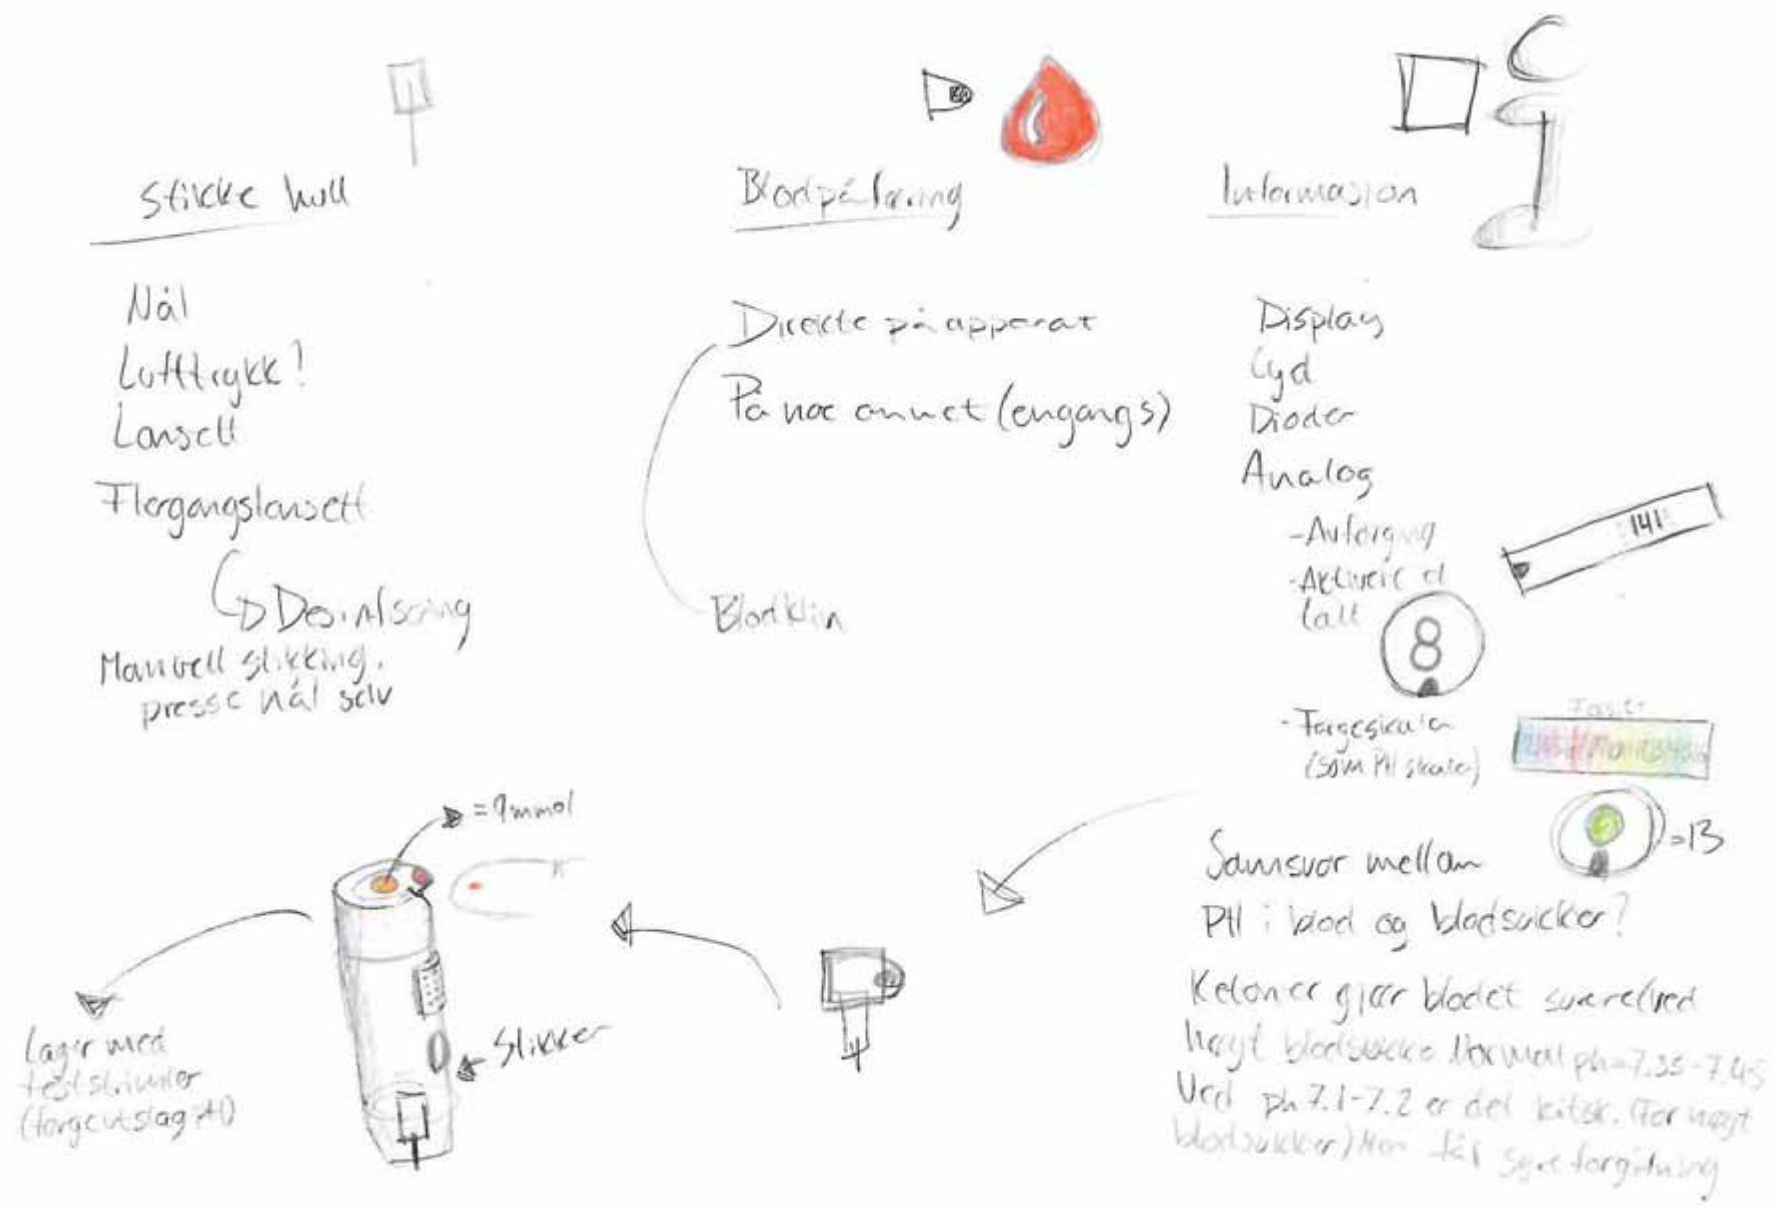 Stikke hull
Nål
Lufttrykk?
Lansett
Flergangslansett
Desinfisering
Manuell stikking.
presse nål selv
Blodpåføring
Direkte på apparat
På noe annet (engangs)
Blodklin
Informasjon
Display
Lyd
Dioder
Analog
-Avfarging
-Aktivere et
tall
141
8
-Fargeskala
(som PH skala)
Fasit
=13
Samsvar mellom
PH i blod og blodsukker?
Ketoner gjør blodet surere(ved
høyt blodsukker. Normal ph=7.35-7.45
Ved ph 7.1-7.2 er det kritisk. (For høyt
blodsukker) Man får syreforgiftning
=9mmol
Stikker
Lager med
teststrimler
(fargeutslag